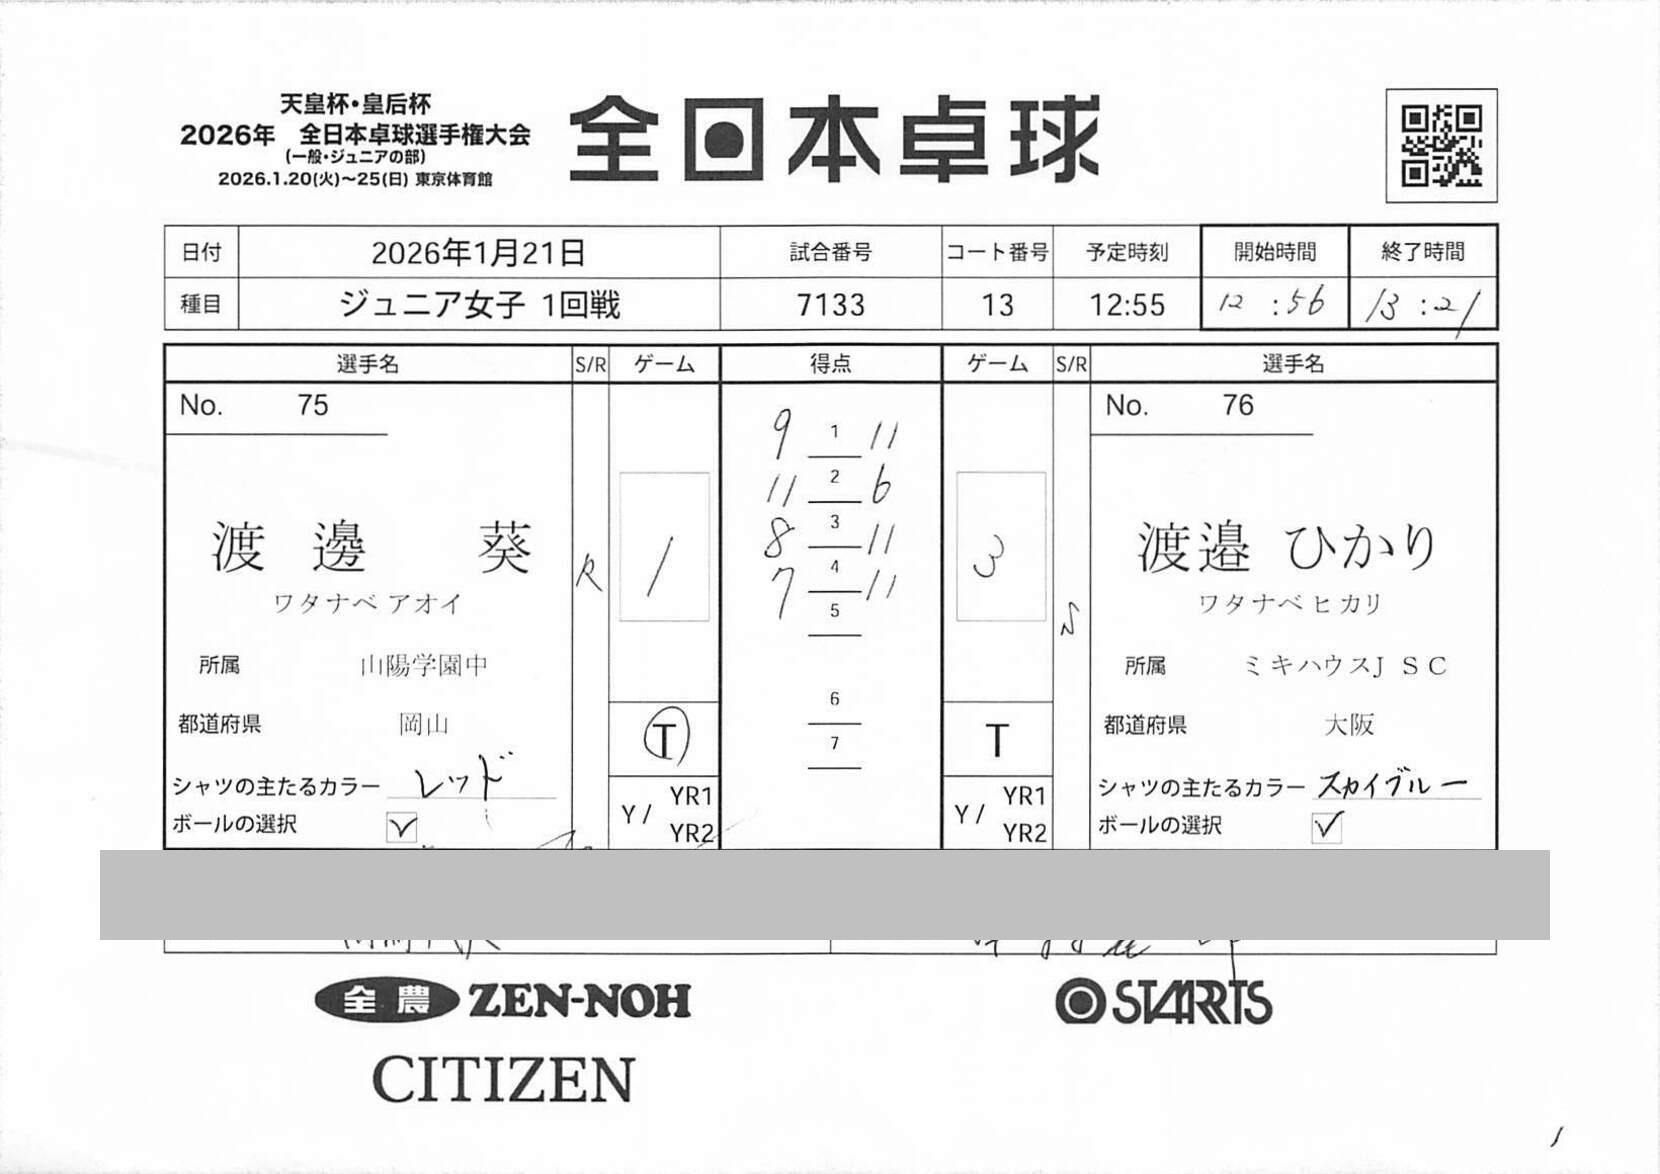 天皇杯・皇后杯
2026年 全日本卓球選手権大会
(一般・ジュニアの部)
2026.1.20(火)〜25(日) 東京体育館
全日本卓球
日付 2026年1月21日 試合番号 コート番号 予定時刻 開始時間 終了時間
種目 ジュニア女子 1回戦 7133 13 12:55 12:56 13:21
選手名 S/R ゲーム 得点 ゲーム S/R 選手名
No. 75 No. 76
9 1 11
11 2 6
8 3 11
7 4 11
5
6
7
渡邊 葵 R 1 3 S 渡邉 ひかり
ワタナベ アオイ ワタナベ ヒカリ
所属 山陽学園中 所属 ミキハウスJSC
都道府県 岡山 T T 都道府県 大阪
シャツの主たるカラー レッド Y/ YR1 Y/ YR1 シャツの主たるカラー スカイブルー
ボールの選択 ✓ YR2 YR2 ボールの選択 ✓
全農 ZEN-NOH STARTS
CITIZEN
1